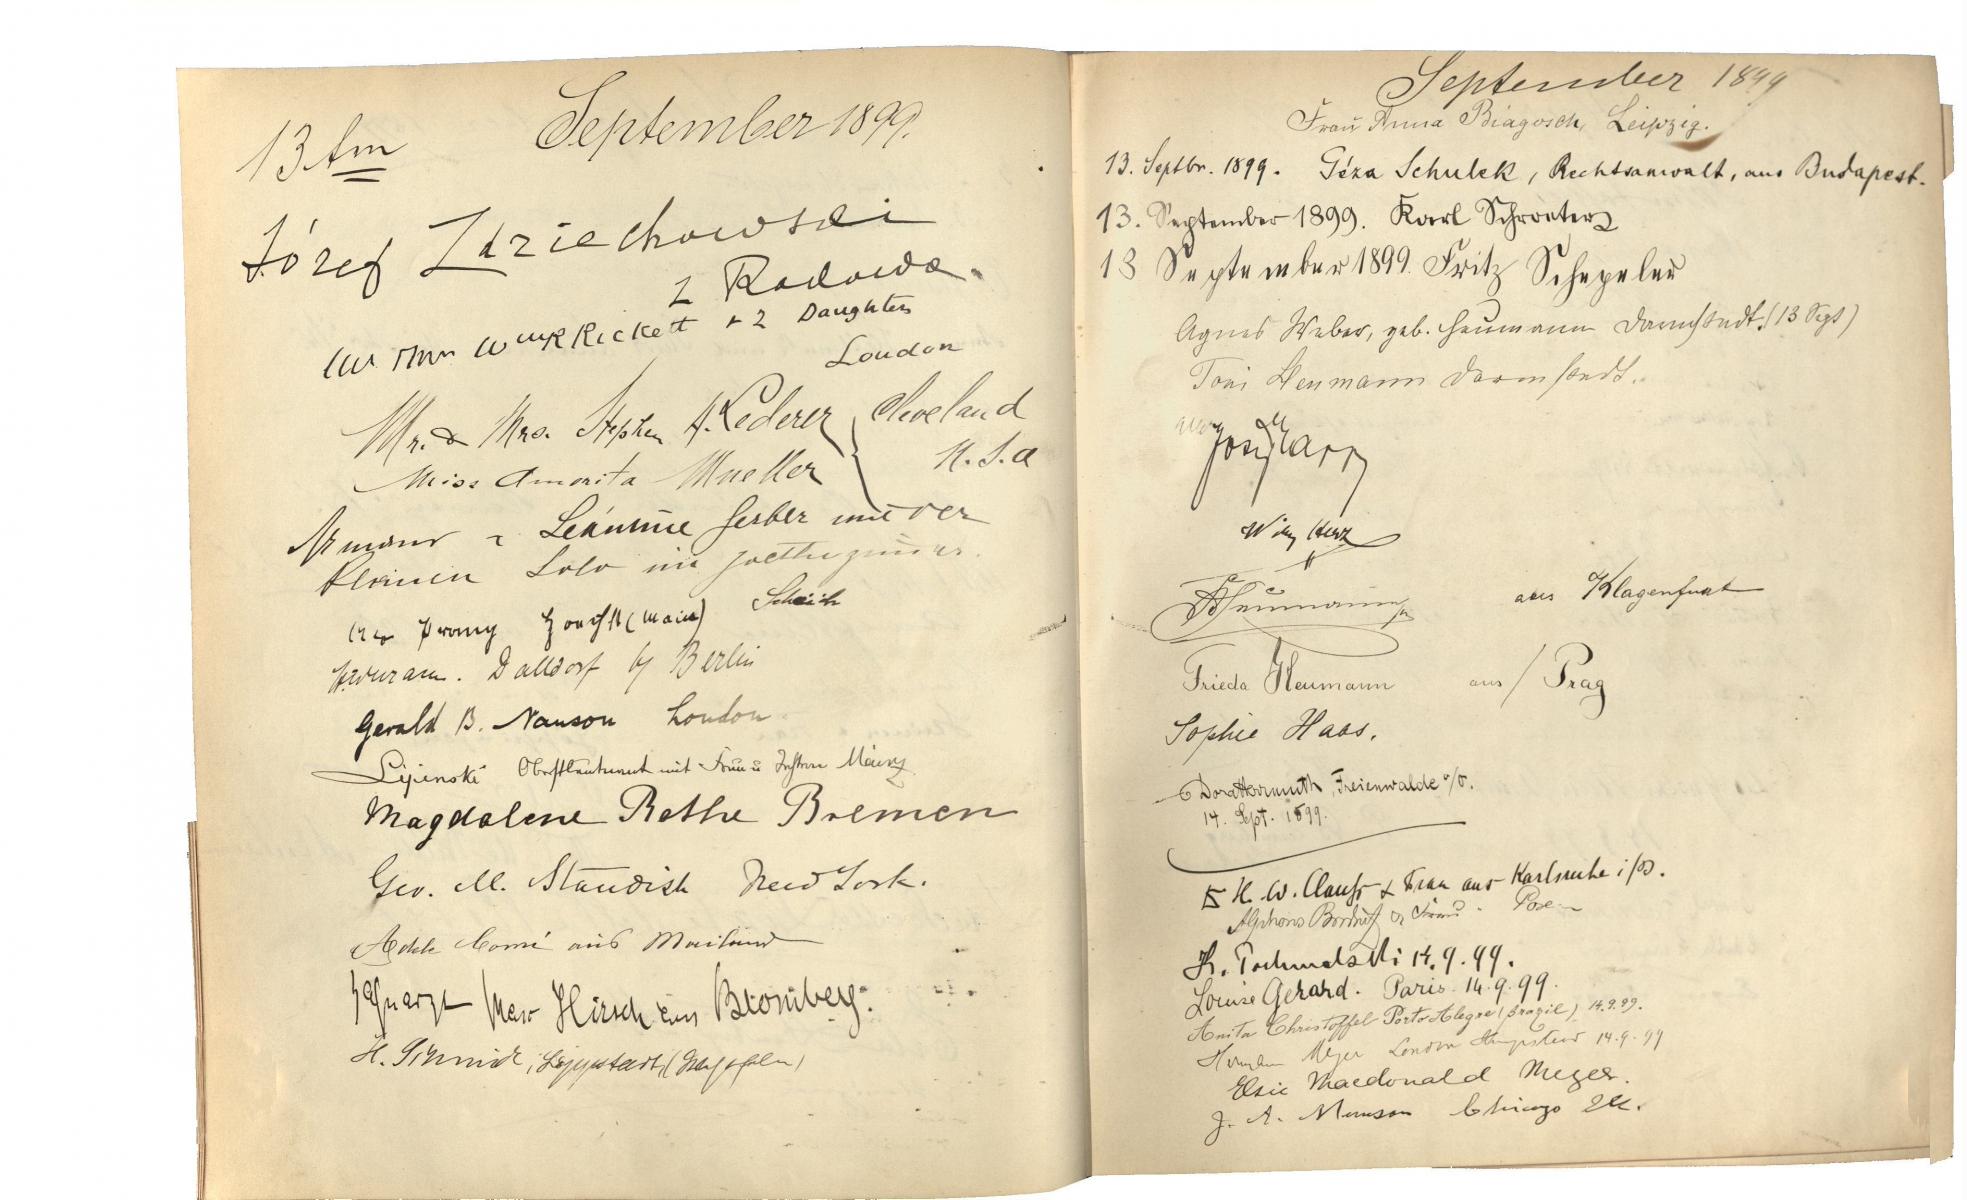 September 1899.
13
Józef Zdziechowski
z Radowa.
Rickett + 2 Daughters
London
Mr. & Mrs. Stephen A. Lederer
Cleveland
Miss Amorita Mueller
U.S.A
Armand u Leánnie Gerber mit der
kleinen Lolo im Goethezimmer.
(Main)
Dalldorf b/ Berlin
Gerald B. Nanson London
Lipinski Oberstleutnant mit Frau u Mainz
Magdalene Rethe Bremen
Geo. M. Standish New York.
Adele Comé aus Mailand
Zahnarzt Max Hirsch aus Bromberg.
H. Schmidt, Lippstadt, (Westfalen)
September 1899
Frau Anna Biagosch, Leipzig.
13. Septbr. 1899. Géza Schulek, Rechtsanwalt, aus Budapest.
13. September 1899. Karl Schroeter
13 September 1899. Fritz Schepeler
Agnes Weber, geb. Heumann Darmstadt. (13 Sept)
Toni Heumann Darmstadt.
Willy Herz
Heumann aus Klagenfurt
Frieda Heumann aus Prag
Sophie Haas.
Dora Hermuth, Freienwalde a/O.
14. Sept. 1899.
H. W. Clauss & Frau aus Karlsruhe i/B.
Alphons Frau Posen
14.9.99.
Louise Gerard. Paris. 14.9.99.
Anita Christoffel Porto Alegre (Brazil) 14.9.99.
Herman Meyer London Hampstead 14.9.99
Elsie Macdonald Meyer.
J. A. Munson Chicago Ill.